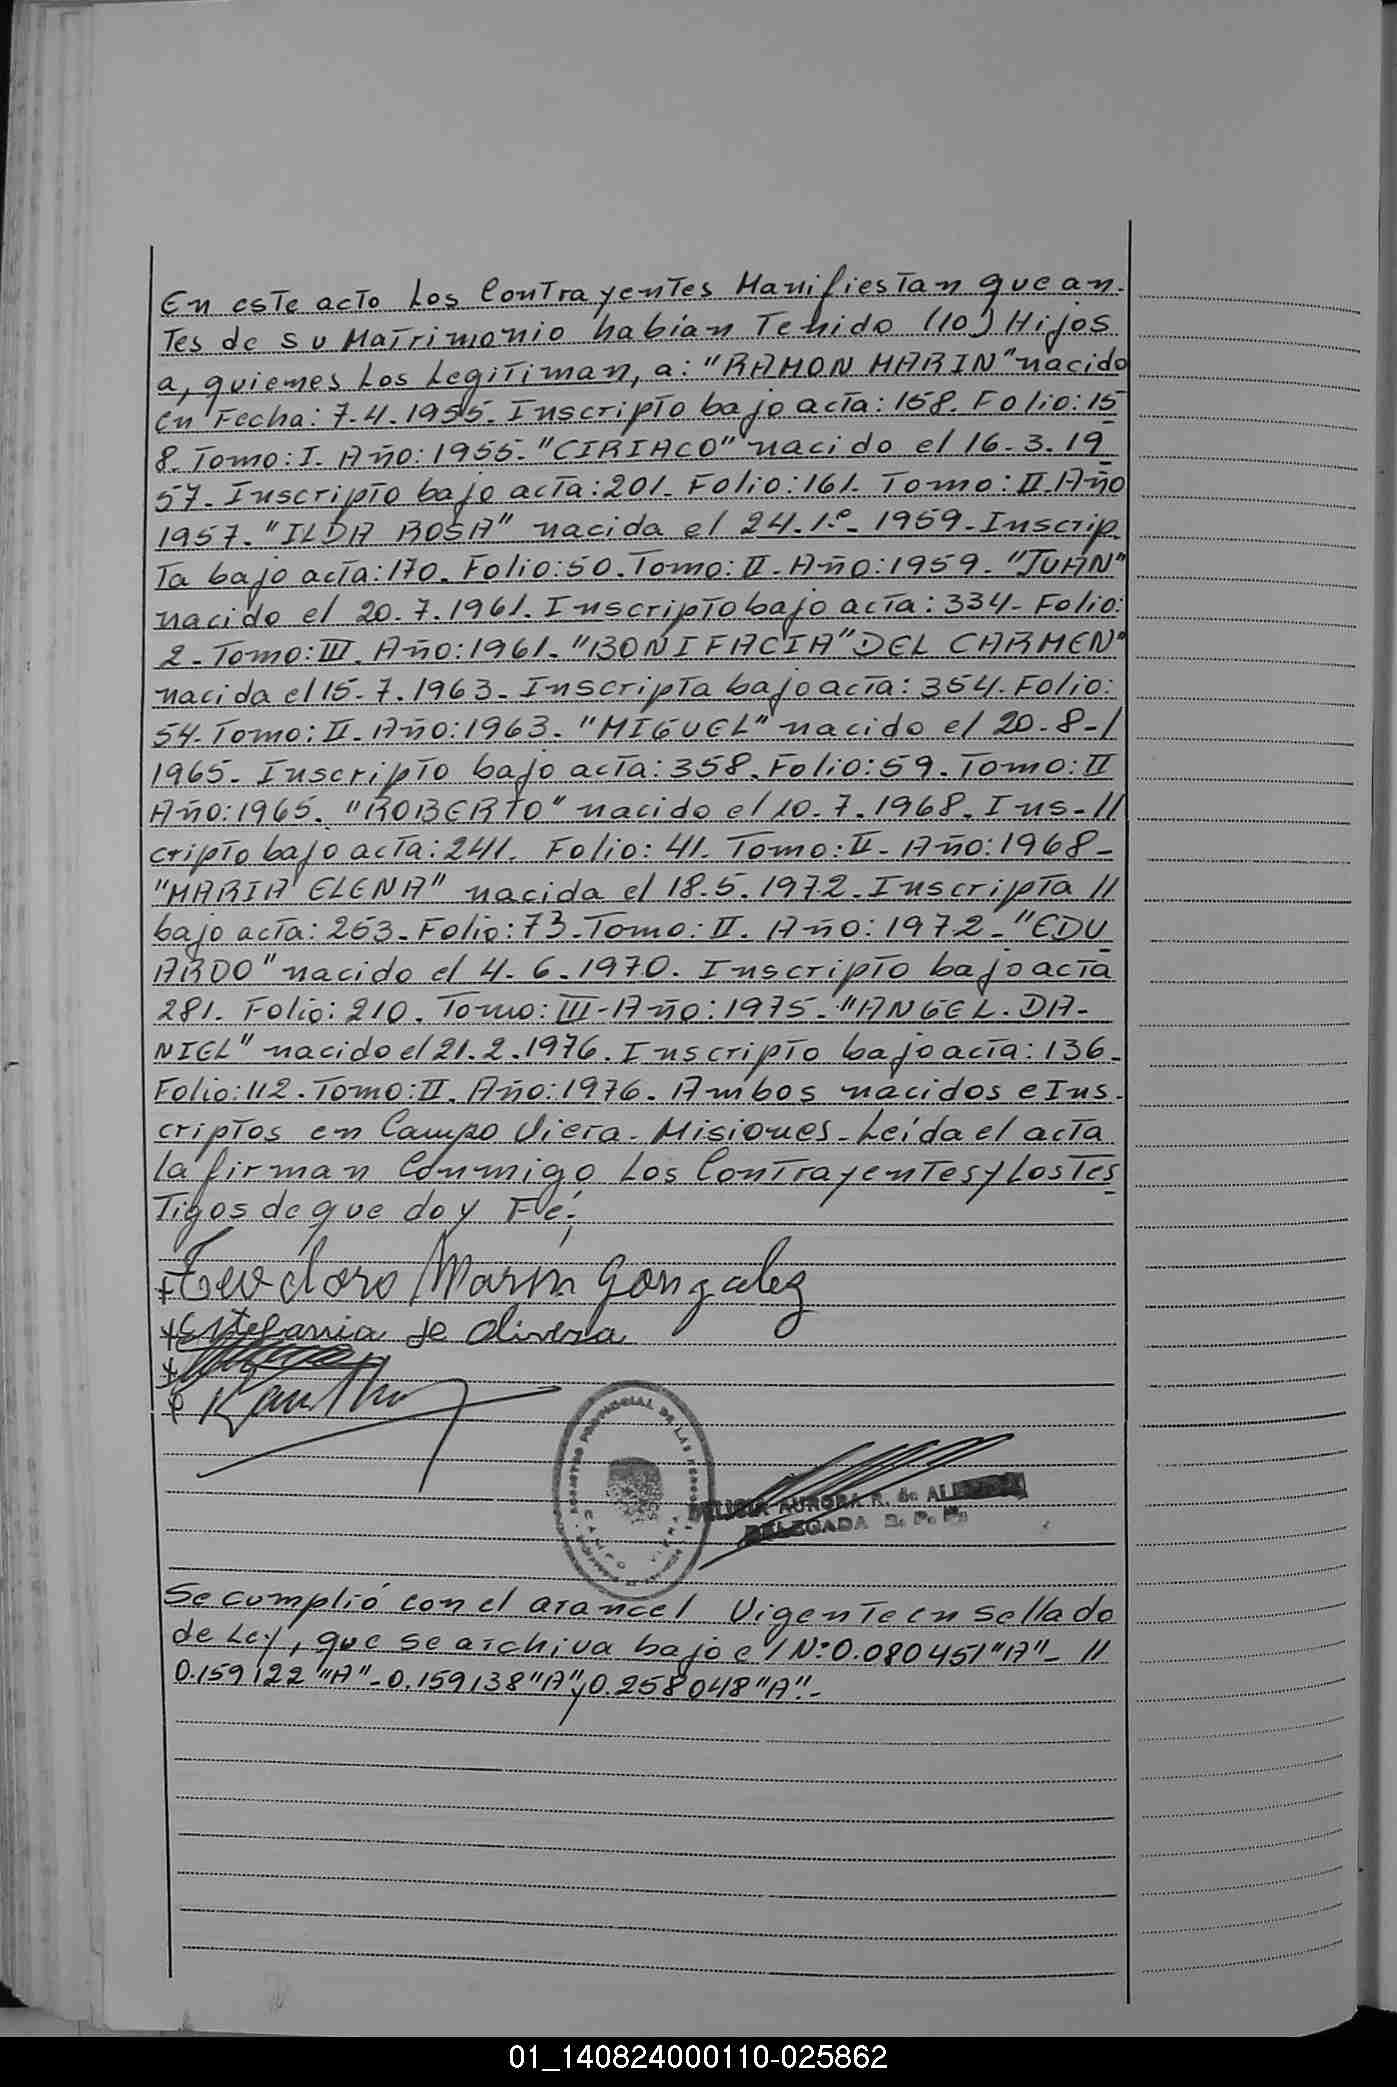 En este acto Los Contrayentes Manifiestan que an-
tes de su Matrimonio habian Tenido (10) Hijos
a, quienes Los Legitiman, a: "RAMON MARIN" nacido
en Fecha: 7.4.1955. Inscripto bajo acta: 158. Folio: 15
8. Tomo: I. Año: 1955. "CIRIACO" nacido el 16.3.19
57. Inscripto bajo acta: 201. Folio: 161. Tomo: II. Año
1957. "ILDA ROSA" nacida el 24.1.º. 1959. Inscrip.
ta bajo acta: 170. Folio: 50. Tomo: II. Año: 1959. "JUAN"
nacido el 20.7.1961. Inscripto bajo acta: 334. Folio:
2. Tomo: III. Año: 1961. "BONIFACIA" DEL CARMEN"
nacida el 15.7.1963. Inscripta bajo acta: 354. Folio:
54. Tomo: II. Año: 1963. "MIGUEL" nacido el 20-8-/
1965. Inscripto bajo acta: 358. Folio: 59. Tomo: II
Año: 1965. "ROBERTO" nacido el 10.7.1968. Ins-//
cripto bajo acta: 241. Folio: 41. Tomo: II. Año: 1968-
"MARIA ELENA" nacida el 18.5.1972. Inscripta //
bajo acta: 263. Folio: 73. Tomo: II. Año: 1972. "EDU
ARDO" nacido el 4.6.1970. Inscripto bajo acta
281. Folio: 210. Tomo: III - Año: 1975. "ANGEL. DA-
NIEL" nacido el 21.2.1976. Inscripto bajo acta: 136.
Folio: 112. Tomo: II. Año: 1976. Ambos nacidos e Ins-
criptos en Campo Viera. Misiones. Leída el acta
la firman Conmigo Los Contrayentes y Los Tes
tigos de que doy Fé;
Teodoro Marin Gonzalez
Estefania de Olivera
REGISTRO PROVINCIAL DE LAS PERSONAS
AURORA R. de
DELEGADA R. P. P.
Se cumplió con el arancel Vigente en Sellado
de Ley, que se archiva bajo el N: 0.080451 "A" - //
0.159122 "A" - 0.159138 "A" y 0.258048 "A".-
01_140824000110-025862